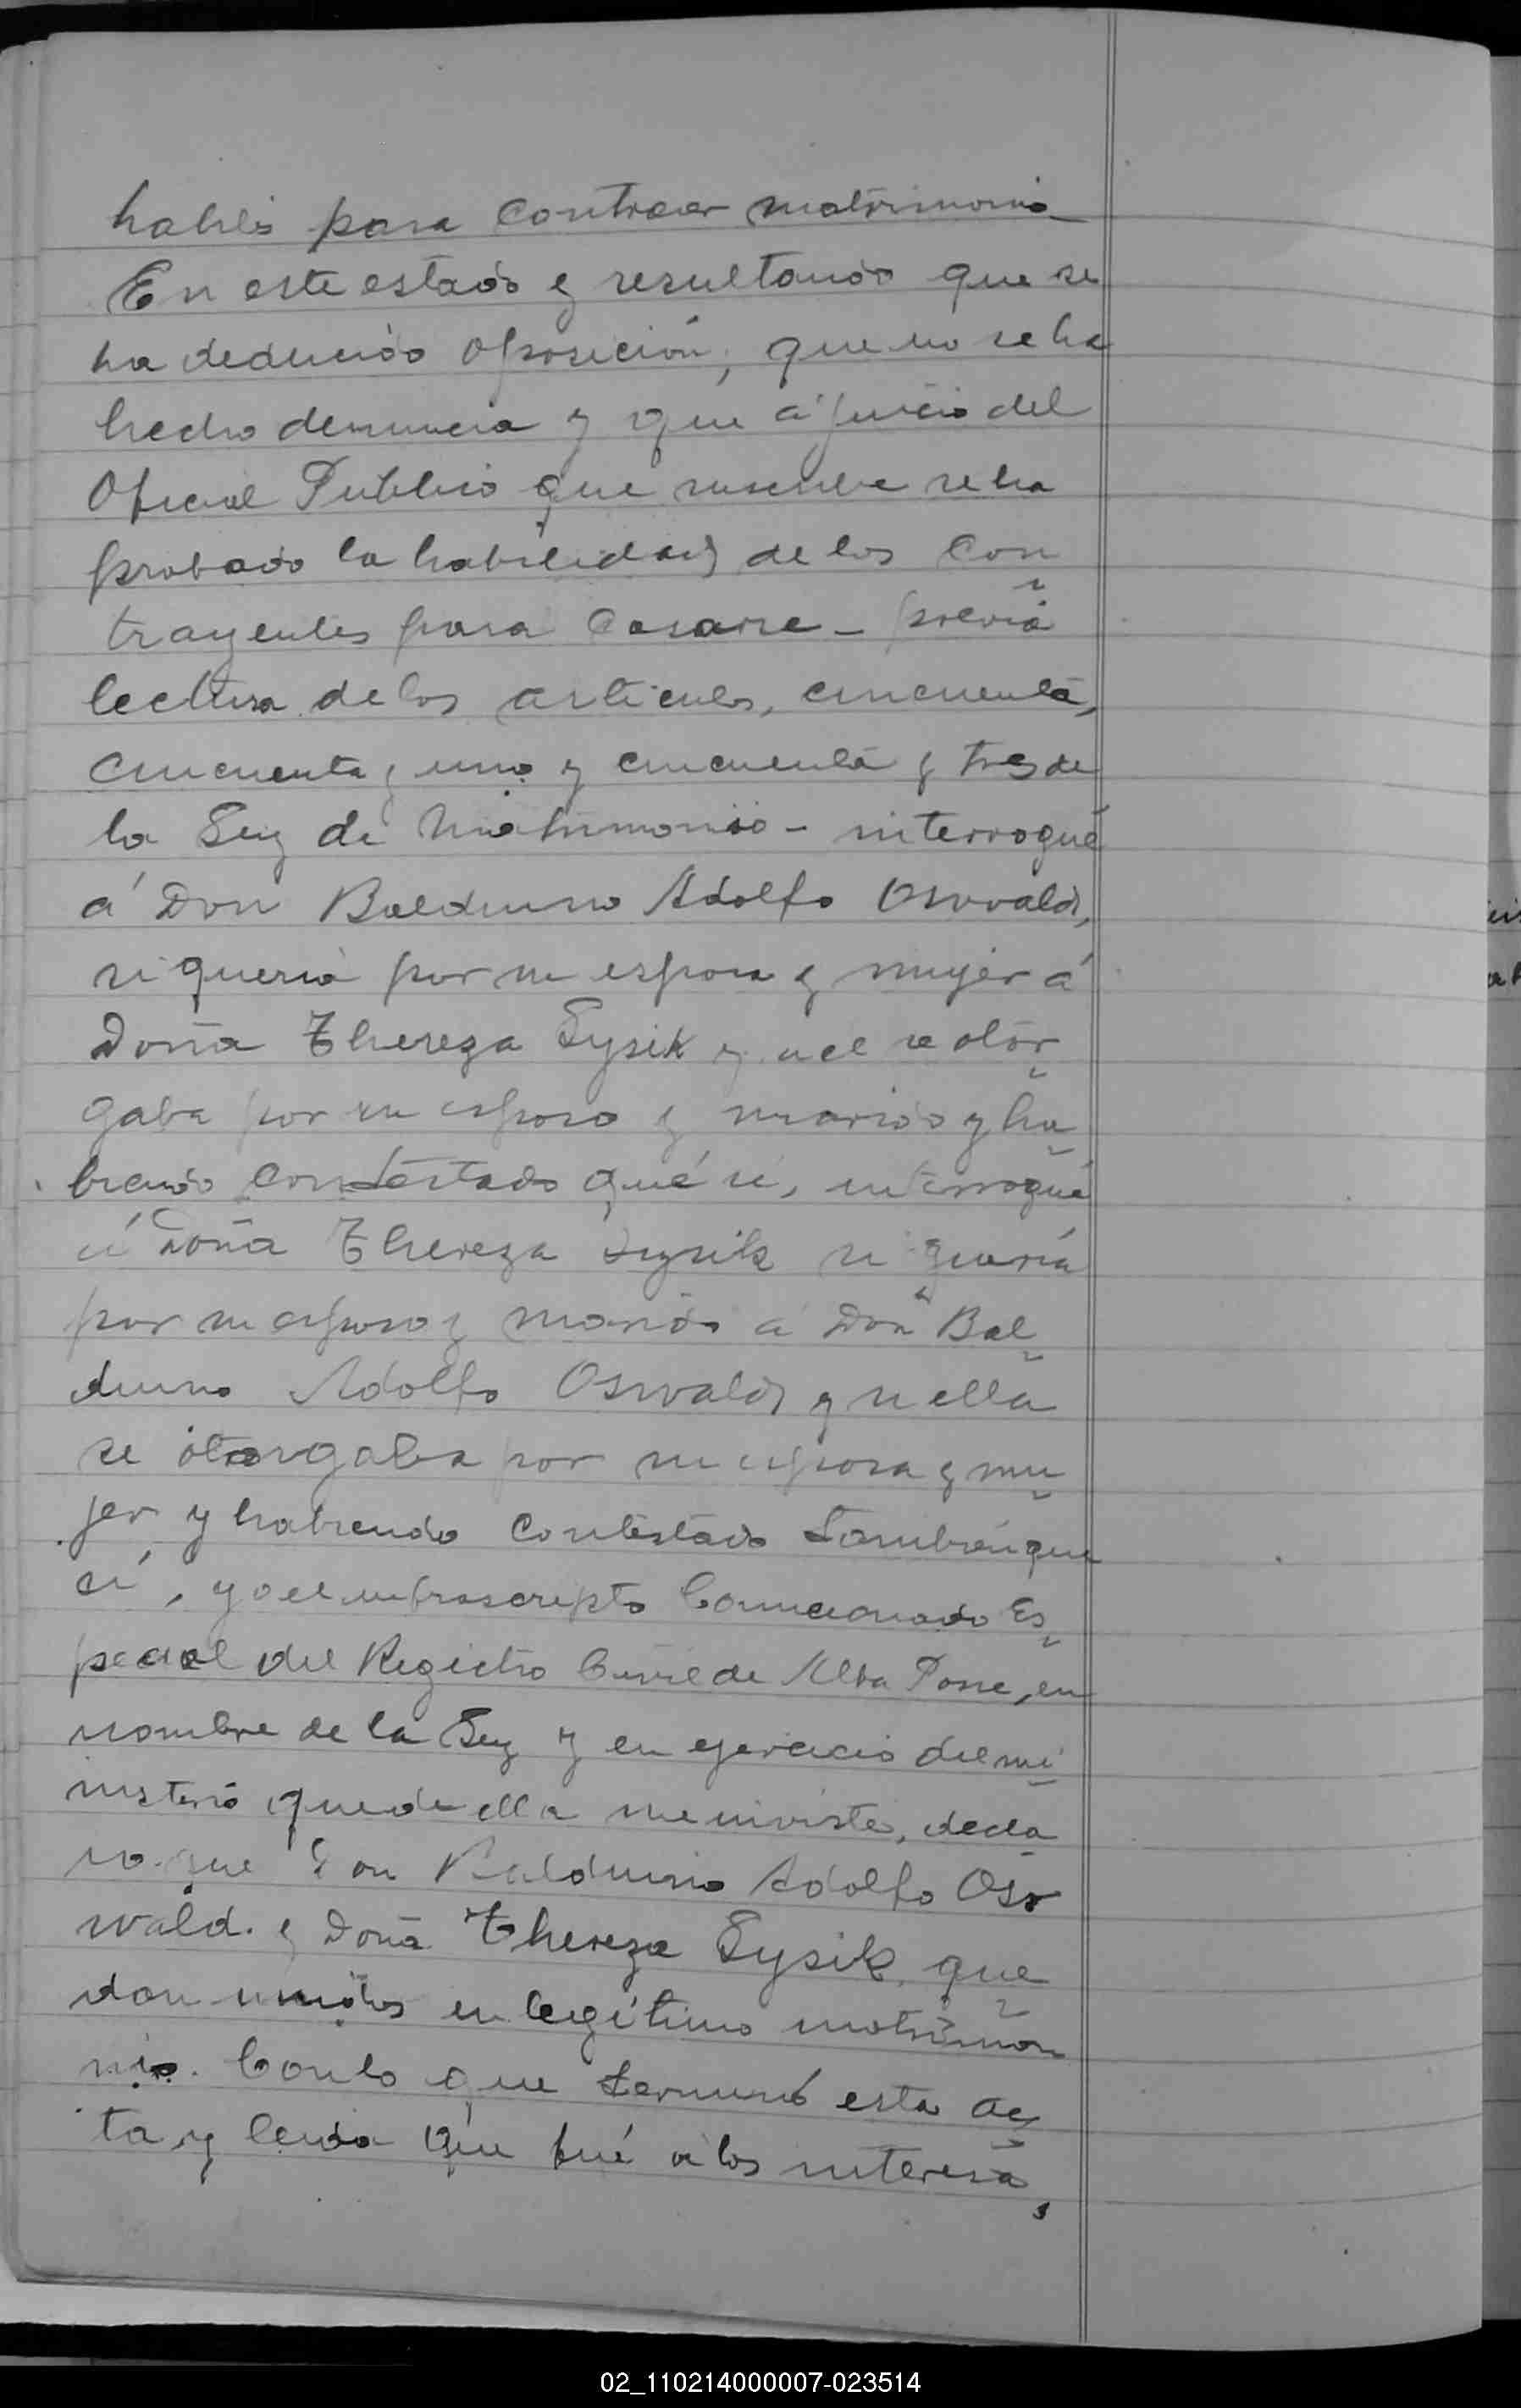 habiles para contraer matrimonio
En este estado y resultando que se
ha deducido oposición, que no se ha
hecho denuncia y que á juicio del
Oficial Publico que suscribe se ha
probado la habilidad de los Con
trayentes para Casarse - previa
lectura de los articulos, cincuenta,
cincuenta y uno y cincuenta y tres de
la Ley de Matrimonio - interrogué
á Don Balduino Adolfo Oswald,
si queria por su esposa y mujer á
Doña Thereza Sysik y si el se otor
gaba por su esposo y marido y ha
biendo contestado qué si, interrogué
á Doña Thereza Sysik si queria
por su esposo y marido á Don Bal
duino Adolfo Oswald y si ella
se otorgaba por su esposa y mu
jer y habiendo contestado tambien que
si, yo el infrascripto Comicionado Es
pecial del Registro Civil de Alba Posse, en
nombre de la Ley y en ejercicio del mi
nisterio que de ella me inviste, decla
ro que Don Balduino Adolfo Os
wald. y Doña Thereza Sysik, que
dan unidos en legítimo matrimo
nio. Con lo que terminó esta ac
ta, y leida que fué a los interesa
02_110214000007-023514